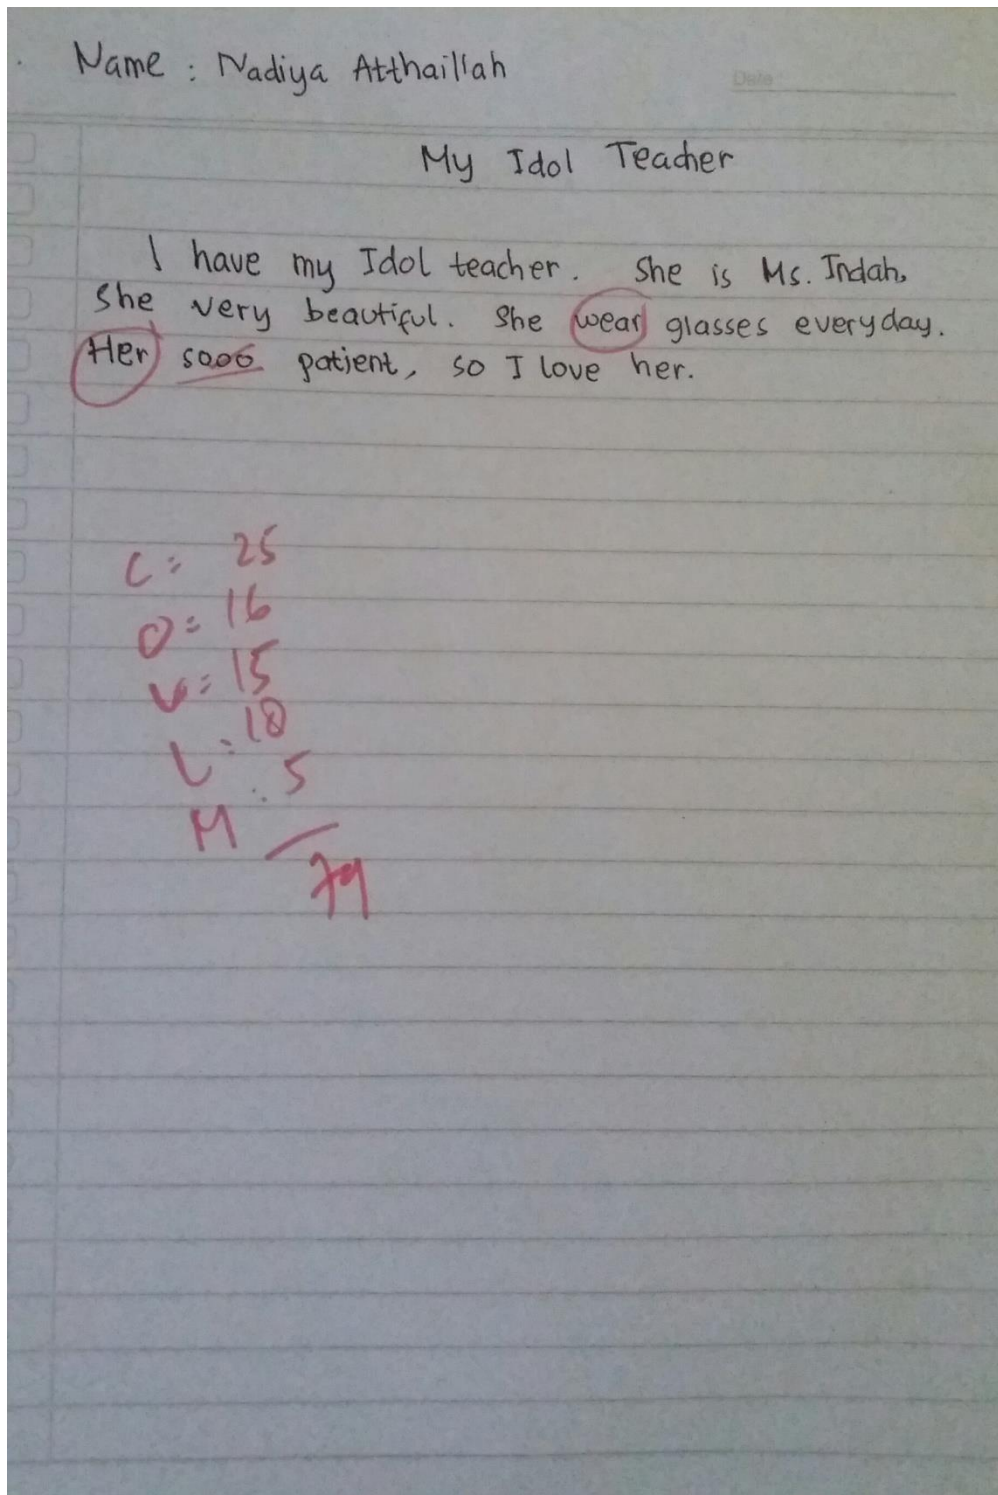 Name : Nadiya Atthaillah
Date
My Idol Teacher
I have my Idol teacher. She is Ms. Indah,
She very beautiful. She wear glasses everyday.
Her sooo patient, so I love her.
C = 25
O = 16
V = 15
L = 18
M : 5
79